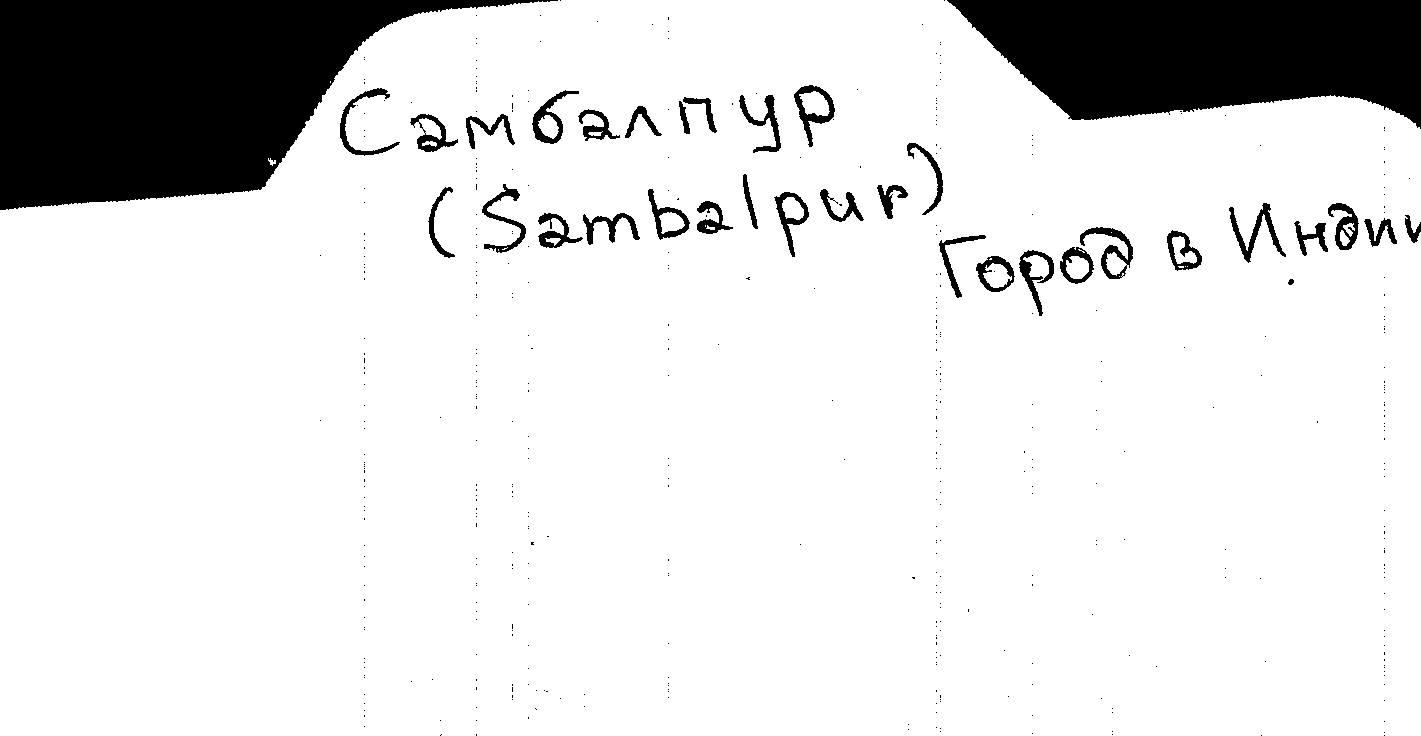 Самбалпур
(Sambalpur)
Город в Индии